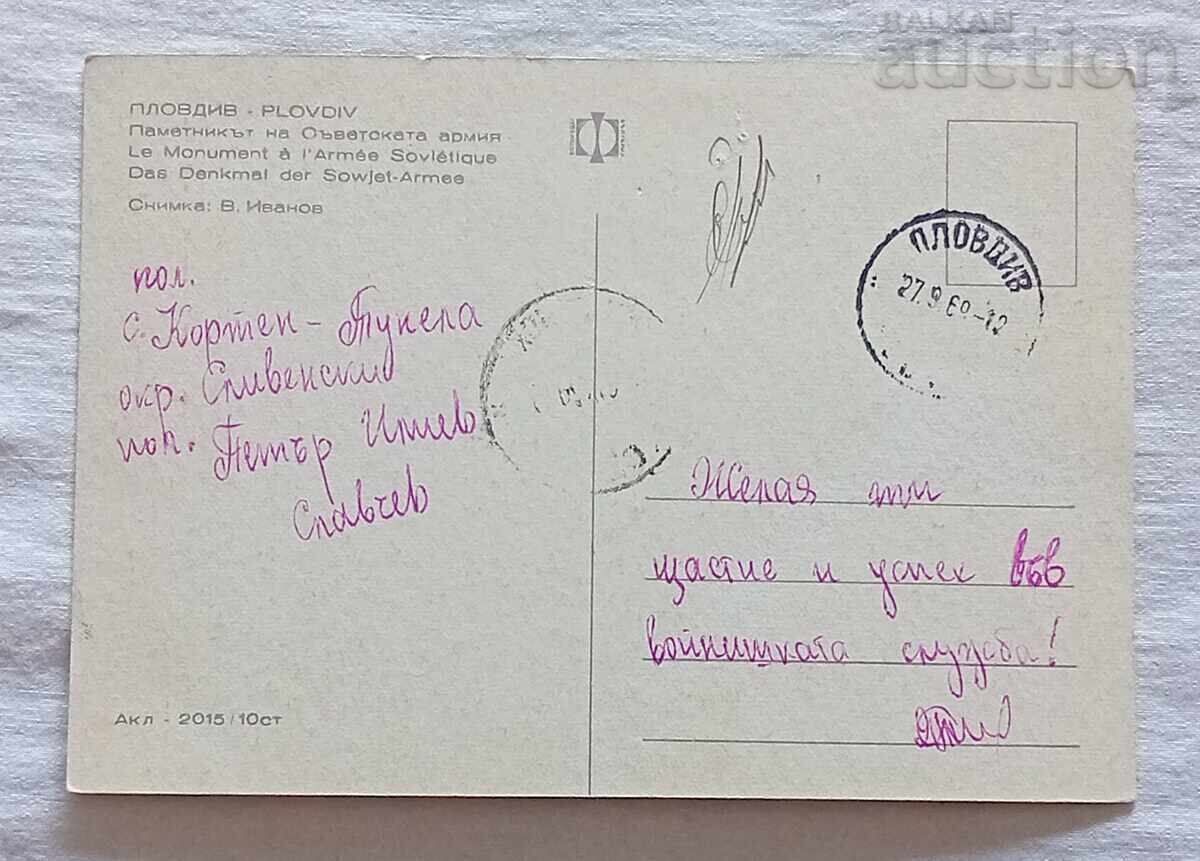 BALKAN
auction
ПЛОВДИВ - PLOVDIV
Паметникът на Съветската армия
Le Monument à l'Armée Soviétique
Das Denkmal der Sowjet-Armee
Снимка: В. Иванов
ПЛОВДИВ
пол.
с. Кортен - Тунела
окр. Сливенски
Петър Илиев
Славчев
Желая ти
щастие и успех във
войнишката служба!
Акл - 2015/10ст